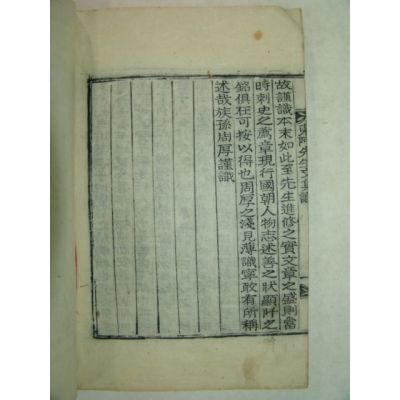 故謹識本末如此至先生進修之實文章之盛則當
時刺史之薦章現行國朝人物志述善之狀顯阡之
銘俱在可按以得也周厚之淺見薄識寧敢有所稱
述哉族孫周厚謹識
先生文集